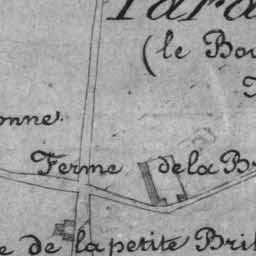 (le Bou
onne.
Ferme de la Br
e de la petite Bril